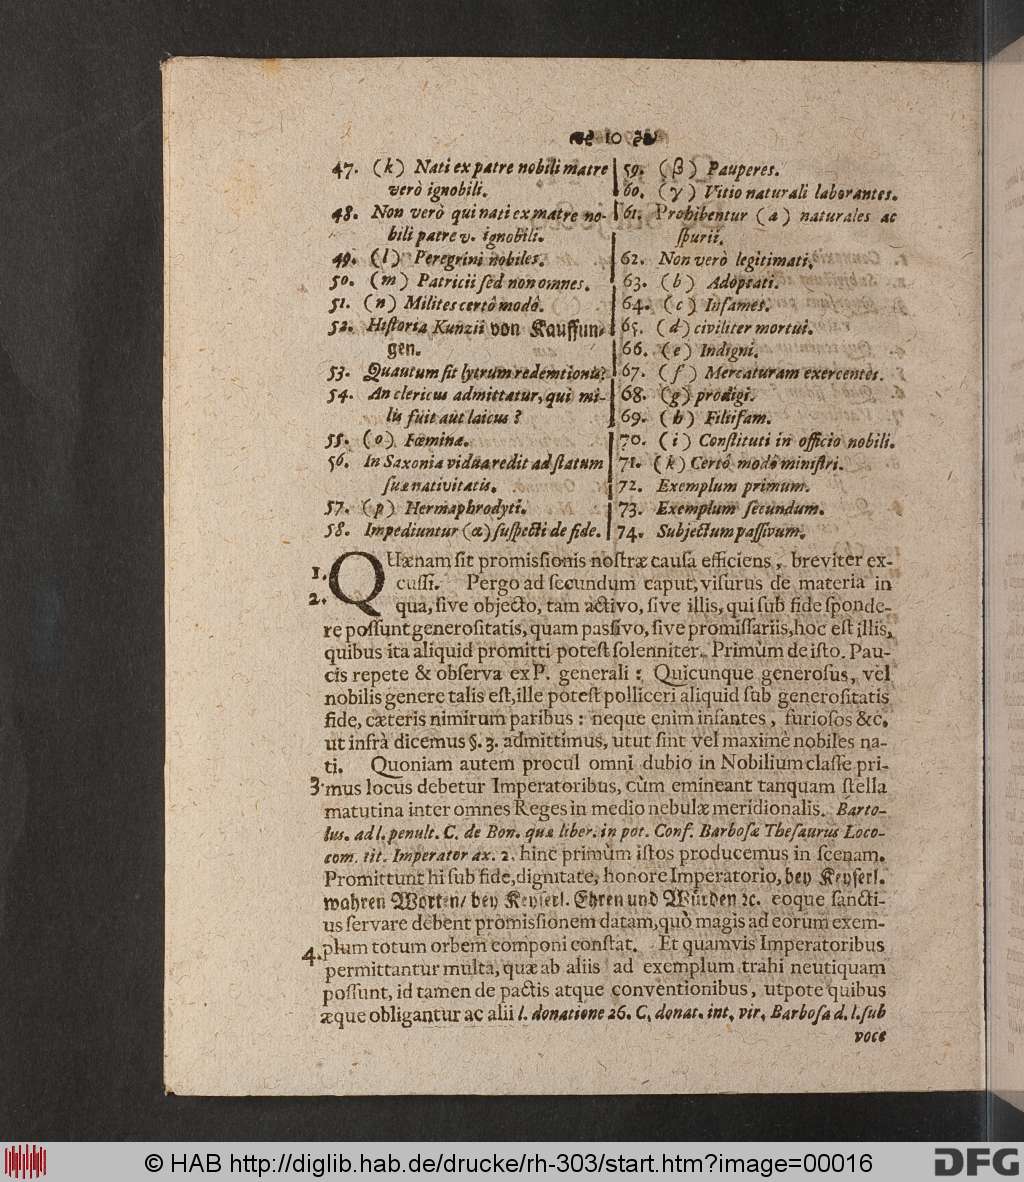 10
47. (k) Nati ex patre nobili matre
verò ignobili.
48. Non verò qui nati ex matre no-
bili patre v. ignobili.
49. (l) Peregrini nobiles.
50. (m) Patricii ſed non omnes.
51. (n) Milites certô modô.
52. Hiſtoria Kunzii von Kauffun-
gen.
53. Quantum ſit lytrum redemtionis?
54. An clericus admittatur, qui mi-
lis fuit aut laicus?
55. (o) Fœminæ.
56. In Saxonia vidua redit ad ſtatum
ſuæ nativitatis.
57. (p) Hermaphrodyti.
58. Impediuntur (α) ſuſpecti de fide.
59. (β) Pauperes.
60. (γ) Vitio naturali laborantes.
61. Prohibentur (a) naturales ac
ſpurii.
62. Non verò legitimati.
63. (b) Adoptati.
64. (c) Infames.
65. (d) civiliter mortui.
66. (e) Indigni.
67. (f) Mercaturam exercentes.
68. (g) prodigi.
69. (h) Filiifam.
70. (i) Conſtituti in officio nobili.
71. (k) Certô modô miniſtri.
72. Exemplum primum.
73. Exemplum ſecundum.
74. Subjectum paſſivum.
1. QUænam ſit promiſſionis noſtræ cauſa efficiens, breviter ex-
cuſſi. Pergo ad ſecundum caput, viſurus de materia in
2. qua, ſive objecto, tam activo, ſive illis, qui ſub fide ſponde-
re poſſunt generoſitatis, quam paſſivo, ſive promiſſariis, hoc eſt illis,
quibus ita aliquid promitti poteſt ſolenniter. Primùm de iſto. Pau-
cis repete & obſerva ex P. generali: Quicunque generoſus, vel
nobilis genere talis eſt, ille poteſt polliceri aliquid ſub generoſitatis
fide, cæteris nimirum paribus: neque enim infantes, furioſos &c.
ut infrà dicemus §. 3. admittimus, utut ſint vel maximè nobiles na-
ti. Quoniam autem procul omni dubio in Nobilium claſſe pri-
3. mus locus debetur Imperatoribus, cùm emineant tanquam ſtella
matutina inter omnes Reges in medio nebulæ meridionalis. Barto-
lus. ad l. penult. C. de Bon. quæ liber. in pot. Conf. Barboſæ Theſaurus Loco-
com. tit. Imperator ax. 2. hinc primùm iſtos producemus in ſcenam.
Promittunt hi ſub fide, dignitate, honore Imperatorio, bey Keyſerl.
wahren Worten/ bey Keyſerl. Ehren und Würden ꝛc. eoque ſancti-
us ſervare debent promiſſionem datam, quò magis ad eorum exem-
plum totum orbem componi conſtat. Et quamvis Imperatoribus
4. permittantur multa, quæ ab aliis ad exemplum trahi neutiquam
poſſunt, id tamen de pactis atque conventionibus, utpote quibus
æque obligantur ac alii l. donatione 26. C. donat. int. vir. Barboſa d. l. ſub
voce
© HAB http://diglib.hab.de/drucke/rh-303/start.htm?image=00016
DFG